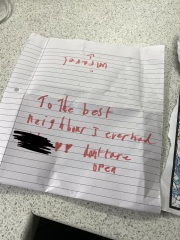 To The best
neighbour I ever had
♥♥ dont tare
open